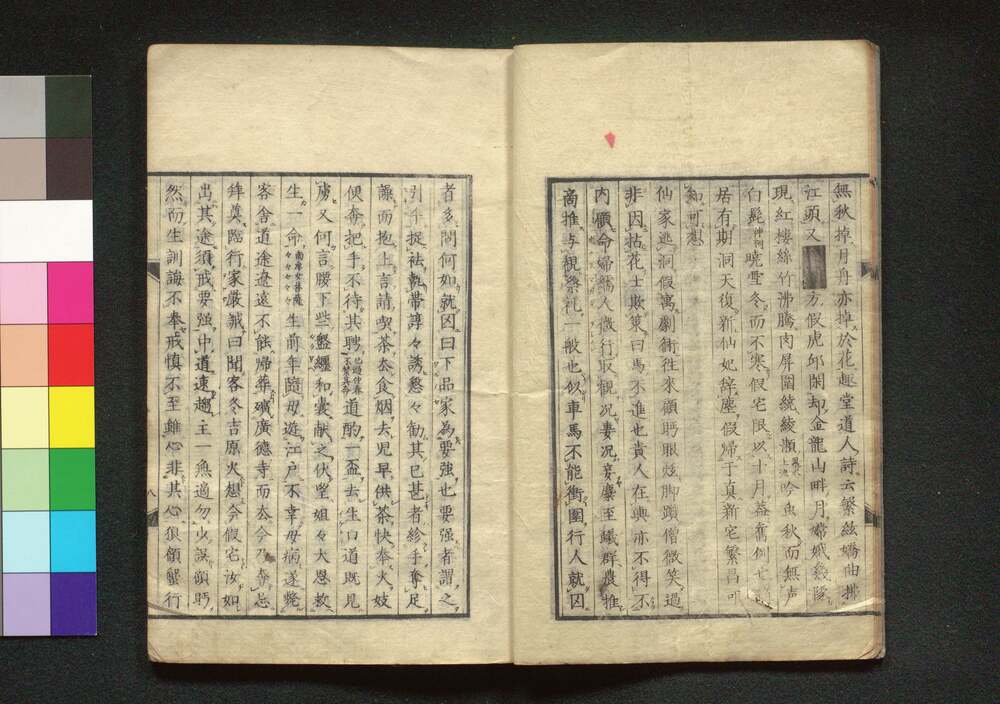 無秋掉月舟亦掉於花趣堂道人詩云繁玆嬌曲排
江頭又方假虎邱閑却金龍山畔月嫦娥
現紅樓絲竹沸騰肉屏圍繞綾瀬吟虫秋而無声
白髭曉雪冬而不寒假宅限以十月落舊例七
居有期洞天復新仙妃辞塵假帰于真新宅繁昌可
知可想
仙家逃洞假寓劇術往來顧眄眼炫脚躓僧微笑過
非因拈花士欺策曰馬不進也貴人在輿亦不得不
内顧命婦孺人微行取観况妻况妾麋至蟻群農推
商推与視落礼一般也似車馬不能衝圍行人就囚
者多問何如就囚曰下品家為要強也要强者謂之
引手捉袪執帯諄々誘懇々勧其已甚者紾手奪足
謙而抱上言請喫茶去食烟去児早供茶快奉火妓
便奔把手不待其聘道酌一盃去生口道既見
虜又何言腰下些盤纏和嚢献之伏望姐々大恩救
生一命生前年随母遊江戸不幸母病遂斃
客舎道途遼遠不能帰葬殯廣徳寺而去今
拜奠臨行家厳誡曰聞客冬吉原火想今假宅汝如
出其途須戒要强中道速趨主一無適勿少誤顧眄
然而生訓誨不奉戒慎不至雖心非其心狼顧蟹行
八